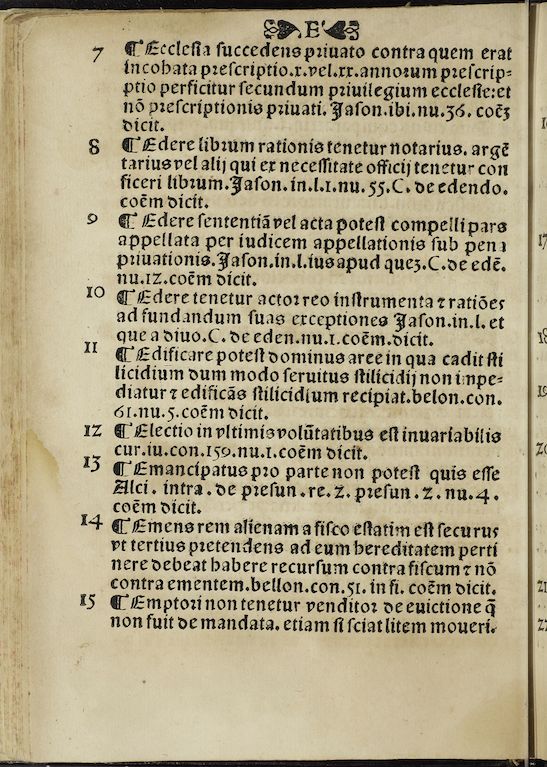 E
7 ¶ Ecclesia succedens priuato contra quem erat
incohata prescriptio.x.vel.xx.annorum prescrip=
ptio perficitur secundum priuilegium ecclesie:et
nō prescriptionis priuati. Jason.ibi.nu.36. coēʒ
dicit.
8 ¶ Edere librum rationis tenetur notarius. argē
tarius vel alij qui ex necessitate officij tenetur con
ficeri librum. Jason. in.l.1.nu. 55. C. de edendo.
coēm dicit.
9 ¶ Edere sententiā vel acta potest compelli pars
appellata per iudicem appellationis sub pena
priuationis. Jason. in.l.ius apud queʒ. C. de edē.
nu.12. coēm dicit.
10 ¶ Edere tenetur actor reo instrumenta ⁊ ratiōes
ad fundandum suas exceptiones Jason. in. l. et
que a diuo. C. de eden. nu.1. coēm.dicit.
11 ¶ Edificare potest dominus aree in qua cadit sti
licidium dum modo seruitus stilicidij non impe=
diatur ⁊ edificās stilicidium recipiat. belon. con.
61. nu. 5. coēm dicit.
12 ¶ Electio in vltimis volūtatibus est inuariabilis
cur. iu. con. 159. nu.1. coēm dicit.
13 ¶ Emancipatus pro parte non potest quis esse
Alci. intra. de presun. re. 2. presun. 2. nu. 4.
coēm dicit.
14 ¶ Emens rem alienam a fisco estatim est securus
vt tertius pretendens ad eum hereditatem perti
nere debeat habere recursum contra fiscum ⁊ nō
contra ementem. bellon. con. 51. in fi. coēm dicit.
15 ¶ Emptori non tenetur venditor de euictione q̄
non fuit de mandata. etiam si sciat litem moueri.